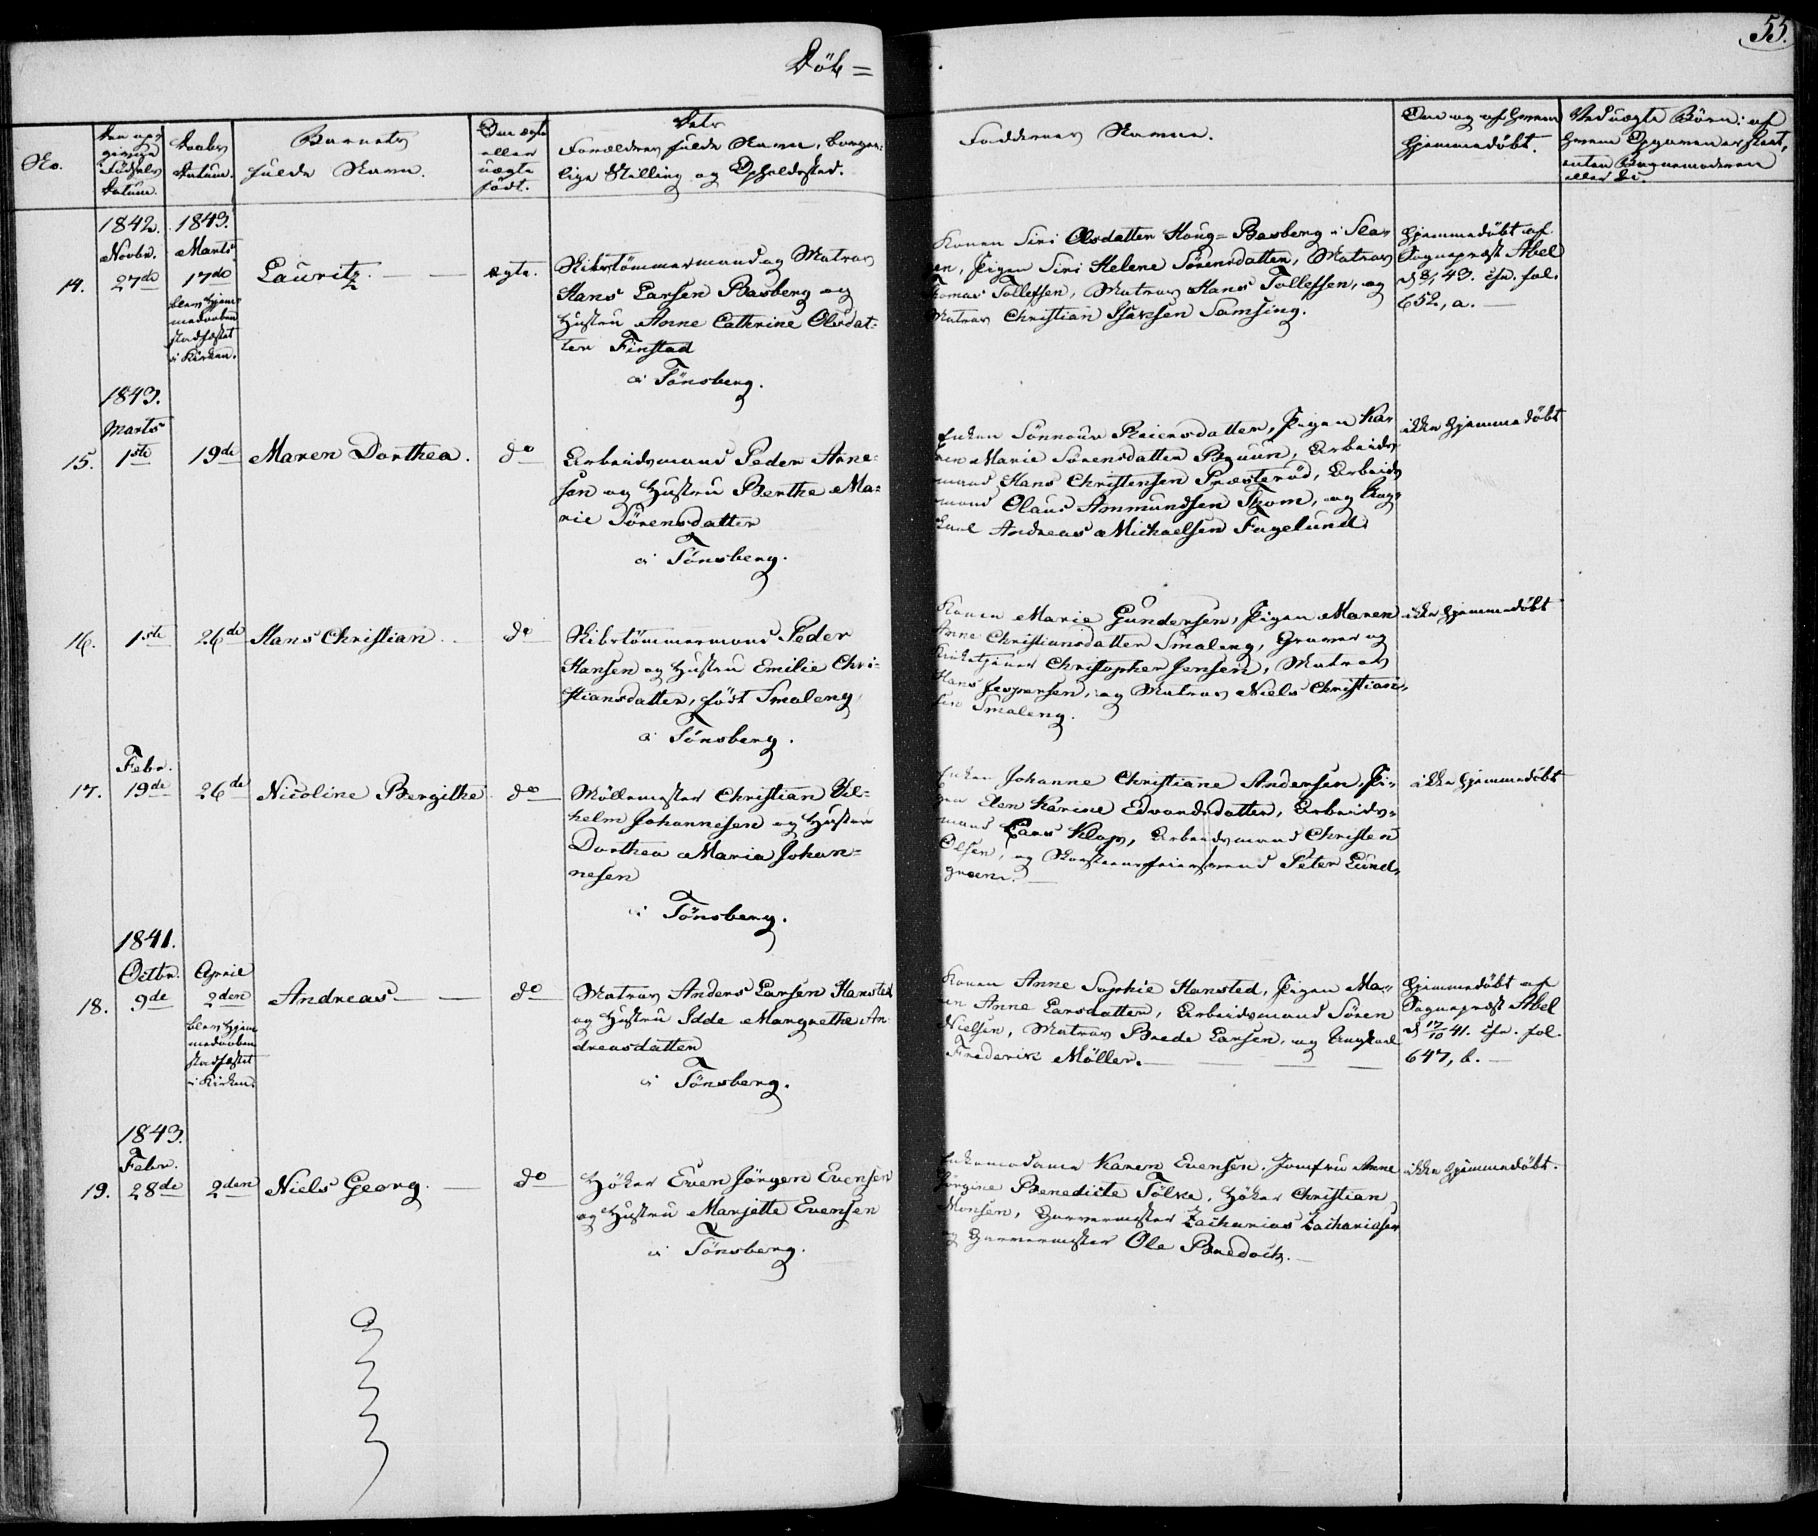 Döb=
55.
No.
Den opgivne Födsels Datum.
Daabs Datum.
Barnets fulde Navn.
Om ægte eller uægte födt.
Dets Forældres fulde Navn, borgerlige Stilling og Opholdssted.
Faddernes Navne.
Om og af hvem hjemmedöbt.
Ved uægte Börn: af hvem Opgaven er skeet, enten Barnemoderen eller &c.
14.
1842. Novbr. 27de
1843. Marts 17de
blev hjemmedaaben stadfæstet i Kirken.
Lauritz.
ægte.
Skibstömmermand og Matros
Hans Larsen Basberg og
Hustru Anne Cathrine Olsdat-
ter Finstad
i Tönsberg.
Konen Siri Olsdatter Houg-Basberg i Sla-
gen, Pigen Siri Helene Sörensdatter, Matros
Thomas Tollefsen, Matros Hans Tollefsen, og
Matros Christian Isaksen Samsing.
hjemmedöbt af
Sognepræst Abel
d 8/1 43. cfr. fol.
652, a.
15.
1843. Marts 1ste
19de
Maren Dorthea.
do
Arbeidsmand Peder Arne-
sen og Hustru Berthe Ma-
rie Sörensdatter
i Tönsberg.
Enken Sönnove Reiersdatter, Pigen Ka-
ren Marie Sörensdatter Bruun, Arbeids-
mand Hans Christensen Præsteröd, Arbeids-
mand Olaus Ammundsen Thom, og Ung-
karl Andreas Michaelsen Fagelund.
ikke hjemmedöbt
16.
1ste
26de
Hans Christian
do
Skibstömmermand Peder
Hansen og Hustru Emilie Chri-
stiansdatter, födt Smaleng
i Tönsberg.
Konen Marie Gundersen, Pigen Maren
Anne Christiansdatter Smaleng, Graver og
Kirketjener Christopher Jensen, Matros
Hans Jespersen, og Matros Niels Christian-
sen Smaleng.
ikke hjemmedöbt
17.
Febr. 19de
26de
Nicoline Bergithe
do
Möllemester Christian Vil-
helm Johannesen og Hustru
Dorthea Maria Johan-
nesen
i Tönsberg.
Enken Johanne Christiane Andersen, Pi-
gen Elen Karine Edvardsdatter, Arbeids-
mand Lars Klop, Arbeidsmand Christen
Olsen, og Skorsteensfeiersvend Peter Lund-
green.
ikke hjemmedöbt
18.
1841. Octbr. 9de
April 2den
blev hjemmedaaben stadfæstet i Kirken.
Andreas
do
Matros Anders Larsen Hansted
og Hustru Idde Margrethe An-
dreasdatter
i Tönsberg.
Konen Anne Sophie Hansted, Pigen Ma-
ren Anne Larsdatter, Arbeidsmand Sören
Nielsen, Matros Brede Larsen, og Ungkarl
Frederik Möller.
hjemmedöbt af
Sognepræst Abel
d 17/10 41. cfr. fol.
647, b.
19.
1843. Febr. 28de
2den
Niels Georg.
do
Höker Even Jörgen Evensen
og Hustru Marjette Evensen
i Tönsberg.
Enkemadame Karen Evensen, Jomfru Anne
Jörgine Benedicte Tölke, Höker Christian
Monsen, Garvermester Zacharias Zachariasen
og Garvermester Ole Bredock.
ikke hjemmedöbt.